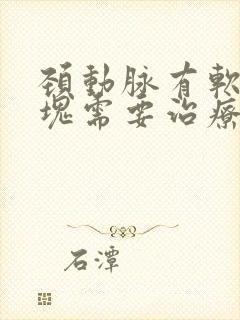 頸動脉有軟
塊需要治療
石潭